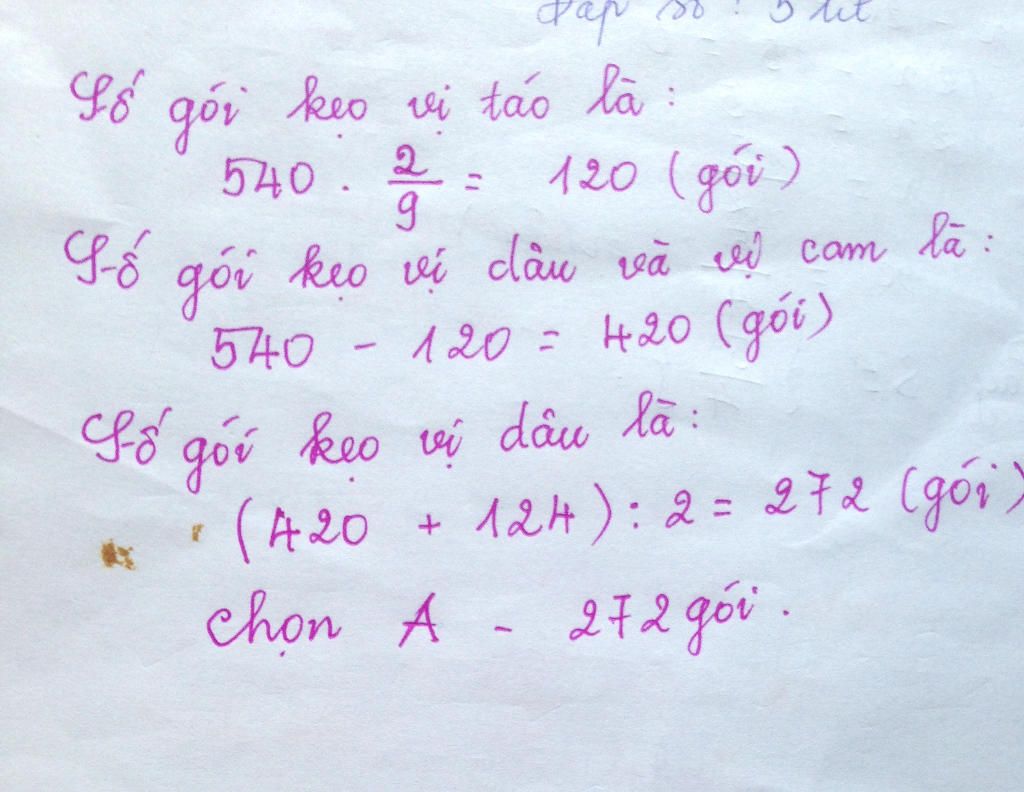 Đáp số : 5 lít
Số gói kẹo vị táo là :
540 . 2/9 = 120 (gói)
Số gói kẹo vị dâu và vị cam là :
540 - 120 = 420 (gói)
Số gói kẹo vị dâu là :
(420 + 124) : 2 = 272 (gói)
Chọn A - 272 gói .